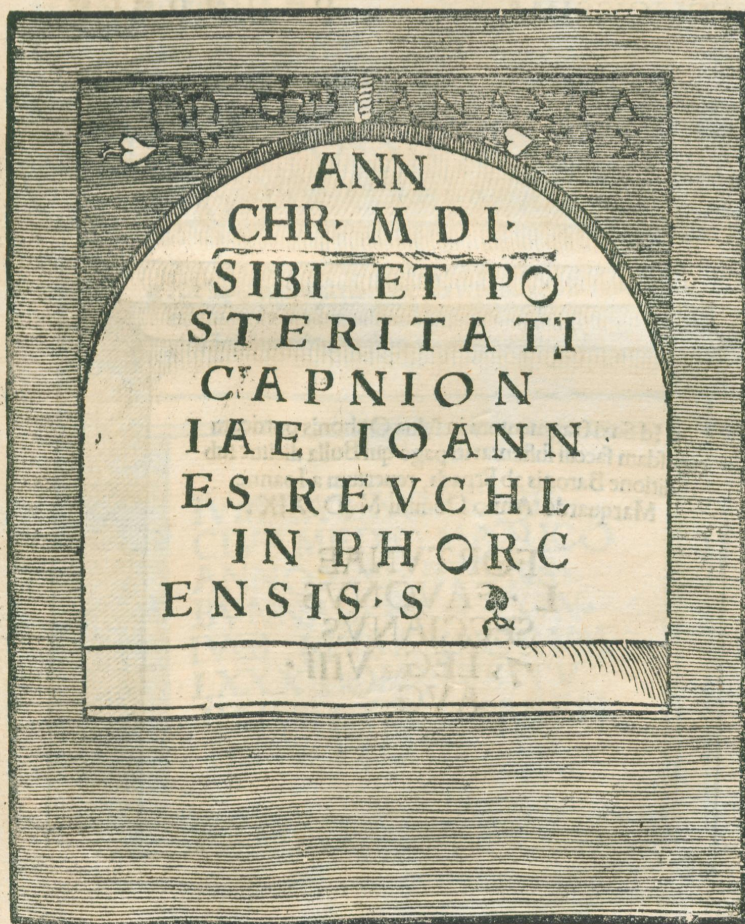 ΑΝΑΣΤΑ
ΣΙΣ
ANN
CHR· M DI·
SIBI ET PO
STERITATI
CAPNION
IAE IOANN
ES REVCHL
IN PHORC
ENSIS·S